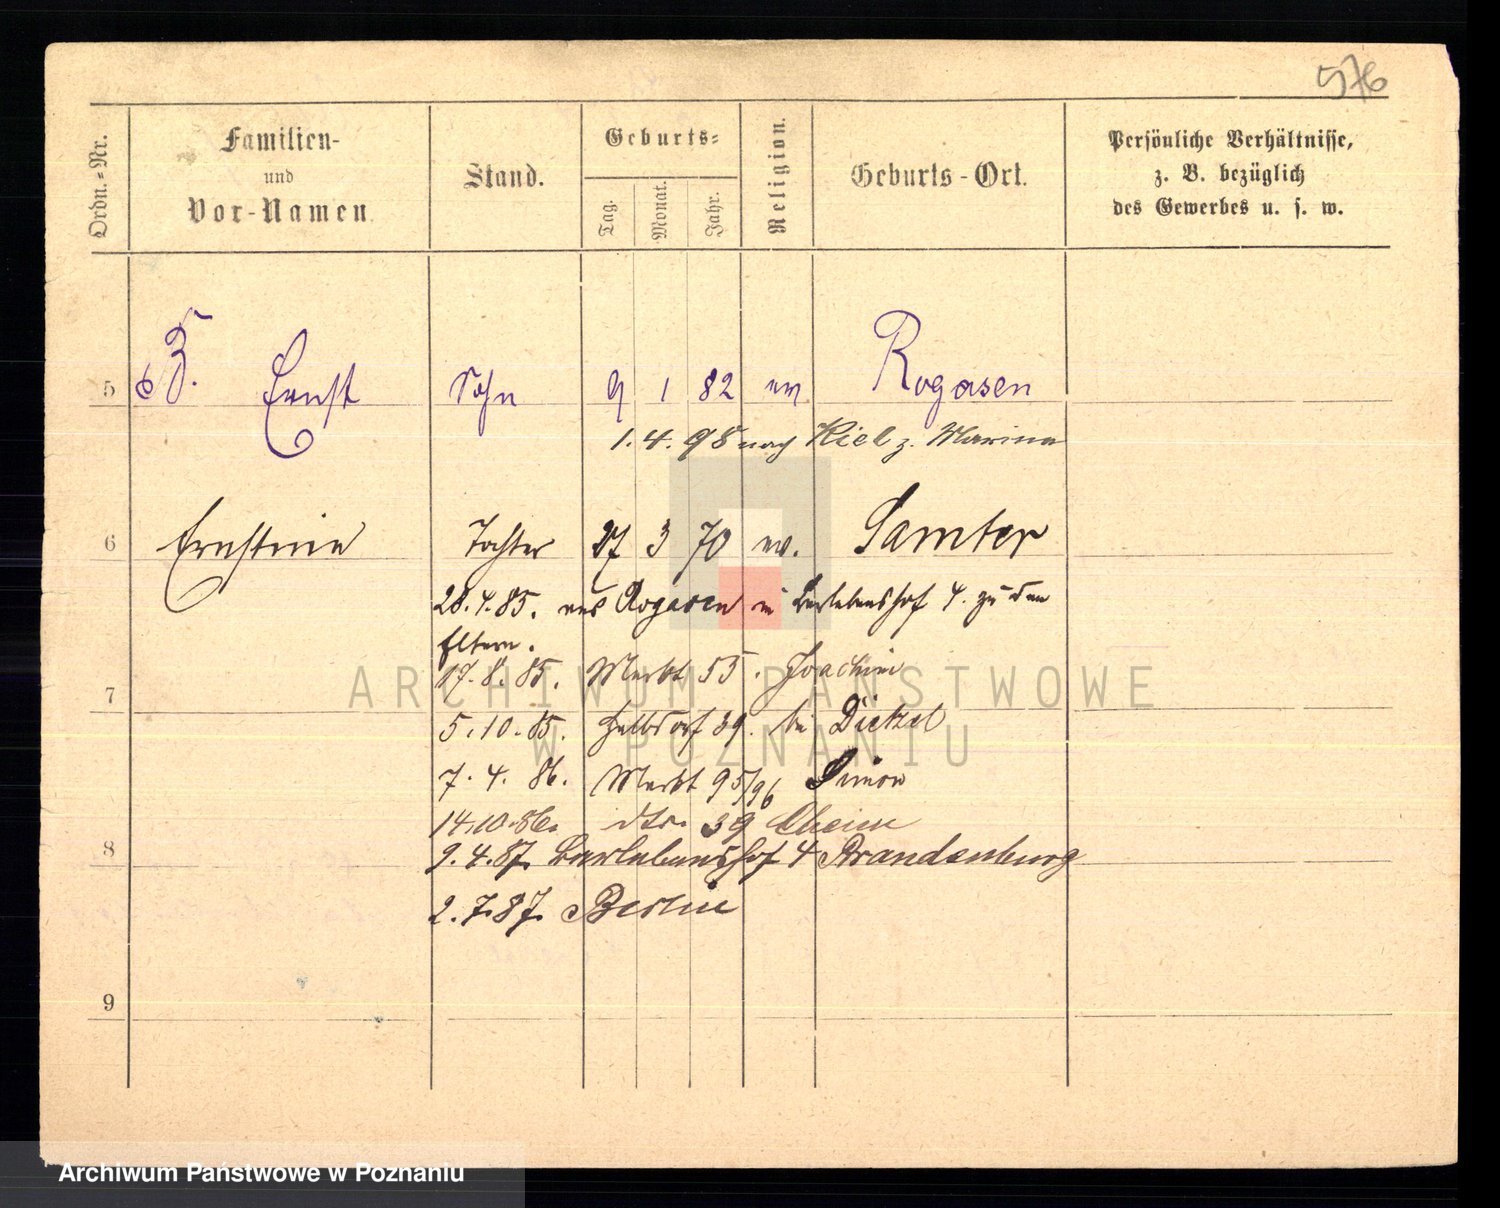 576
Ordn.-Nr.
Familien-
und
Vor-Namen
Stand.
Geburts-
Tag.
Monat.
Jahr.
Religion.
Geburts-Ort.
Persönliche Verhältnisse,
z. B. bezüglich
des Gewerbes u. s. w.
5 Ernst Sohn 9 1 82 ev Rogasen
1. 4. 98 nach Kiel z. Marine
6 Ernstine Tochter 27 3 70 ev. Samter
28. 4. 85. aus Rogasen in Berlebenshof 4. zu den
Eltern.
17. 8. 85. Markt 55. Joachim
7
5. 10. 85. Halbdorf 39. bei
7. 4. 86. Markt 95/96 Simon
14.10.86. dtr. 39
8
9. 4. 87. Berlebenshof 4 Brandenburg
2. 7. 87. Berlin
9
ARCHIWUM PAŃSTWOWE
W POZNANIU
Archiwum Państwowe w Poznaniu